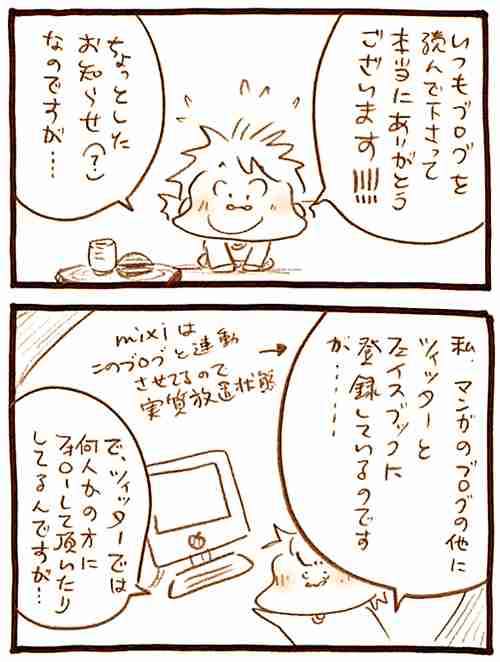 いつもブログを
読んで下さって
本当にありがとう
ございます!!!!!
ちょっとした
お知らせ(?)
なのですが…
私、マンガのブログの他に
ツイッターと
フェイスブックに
登録しているのです
が……
mixiは
このブログと連動
させてるので
実質放置状態
で、ツイッターでは
何人かの方に
フォローして頂いたり
してるんですが…